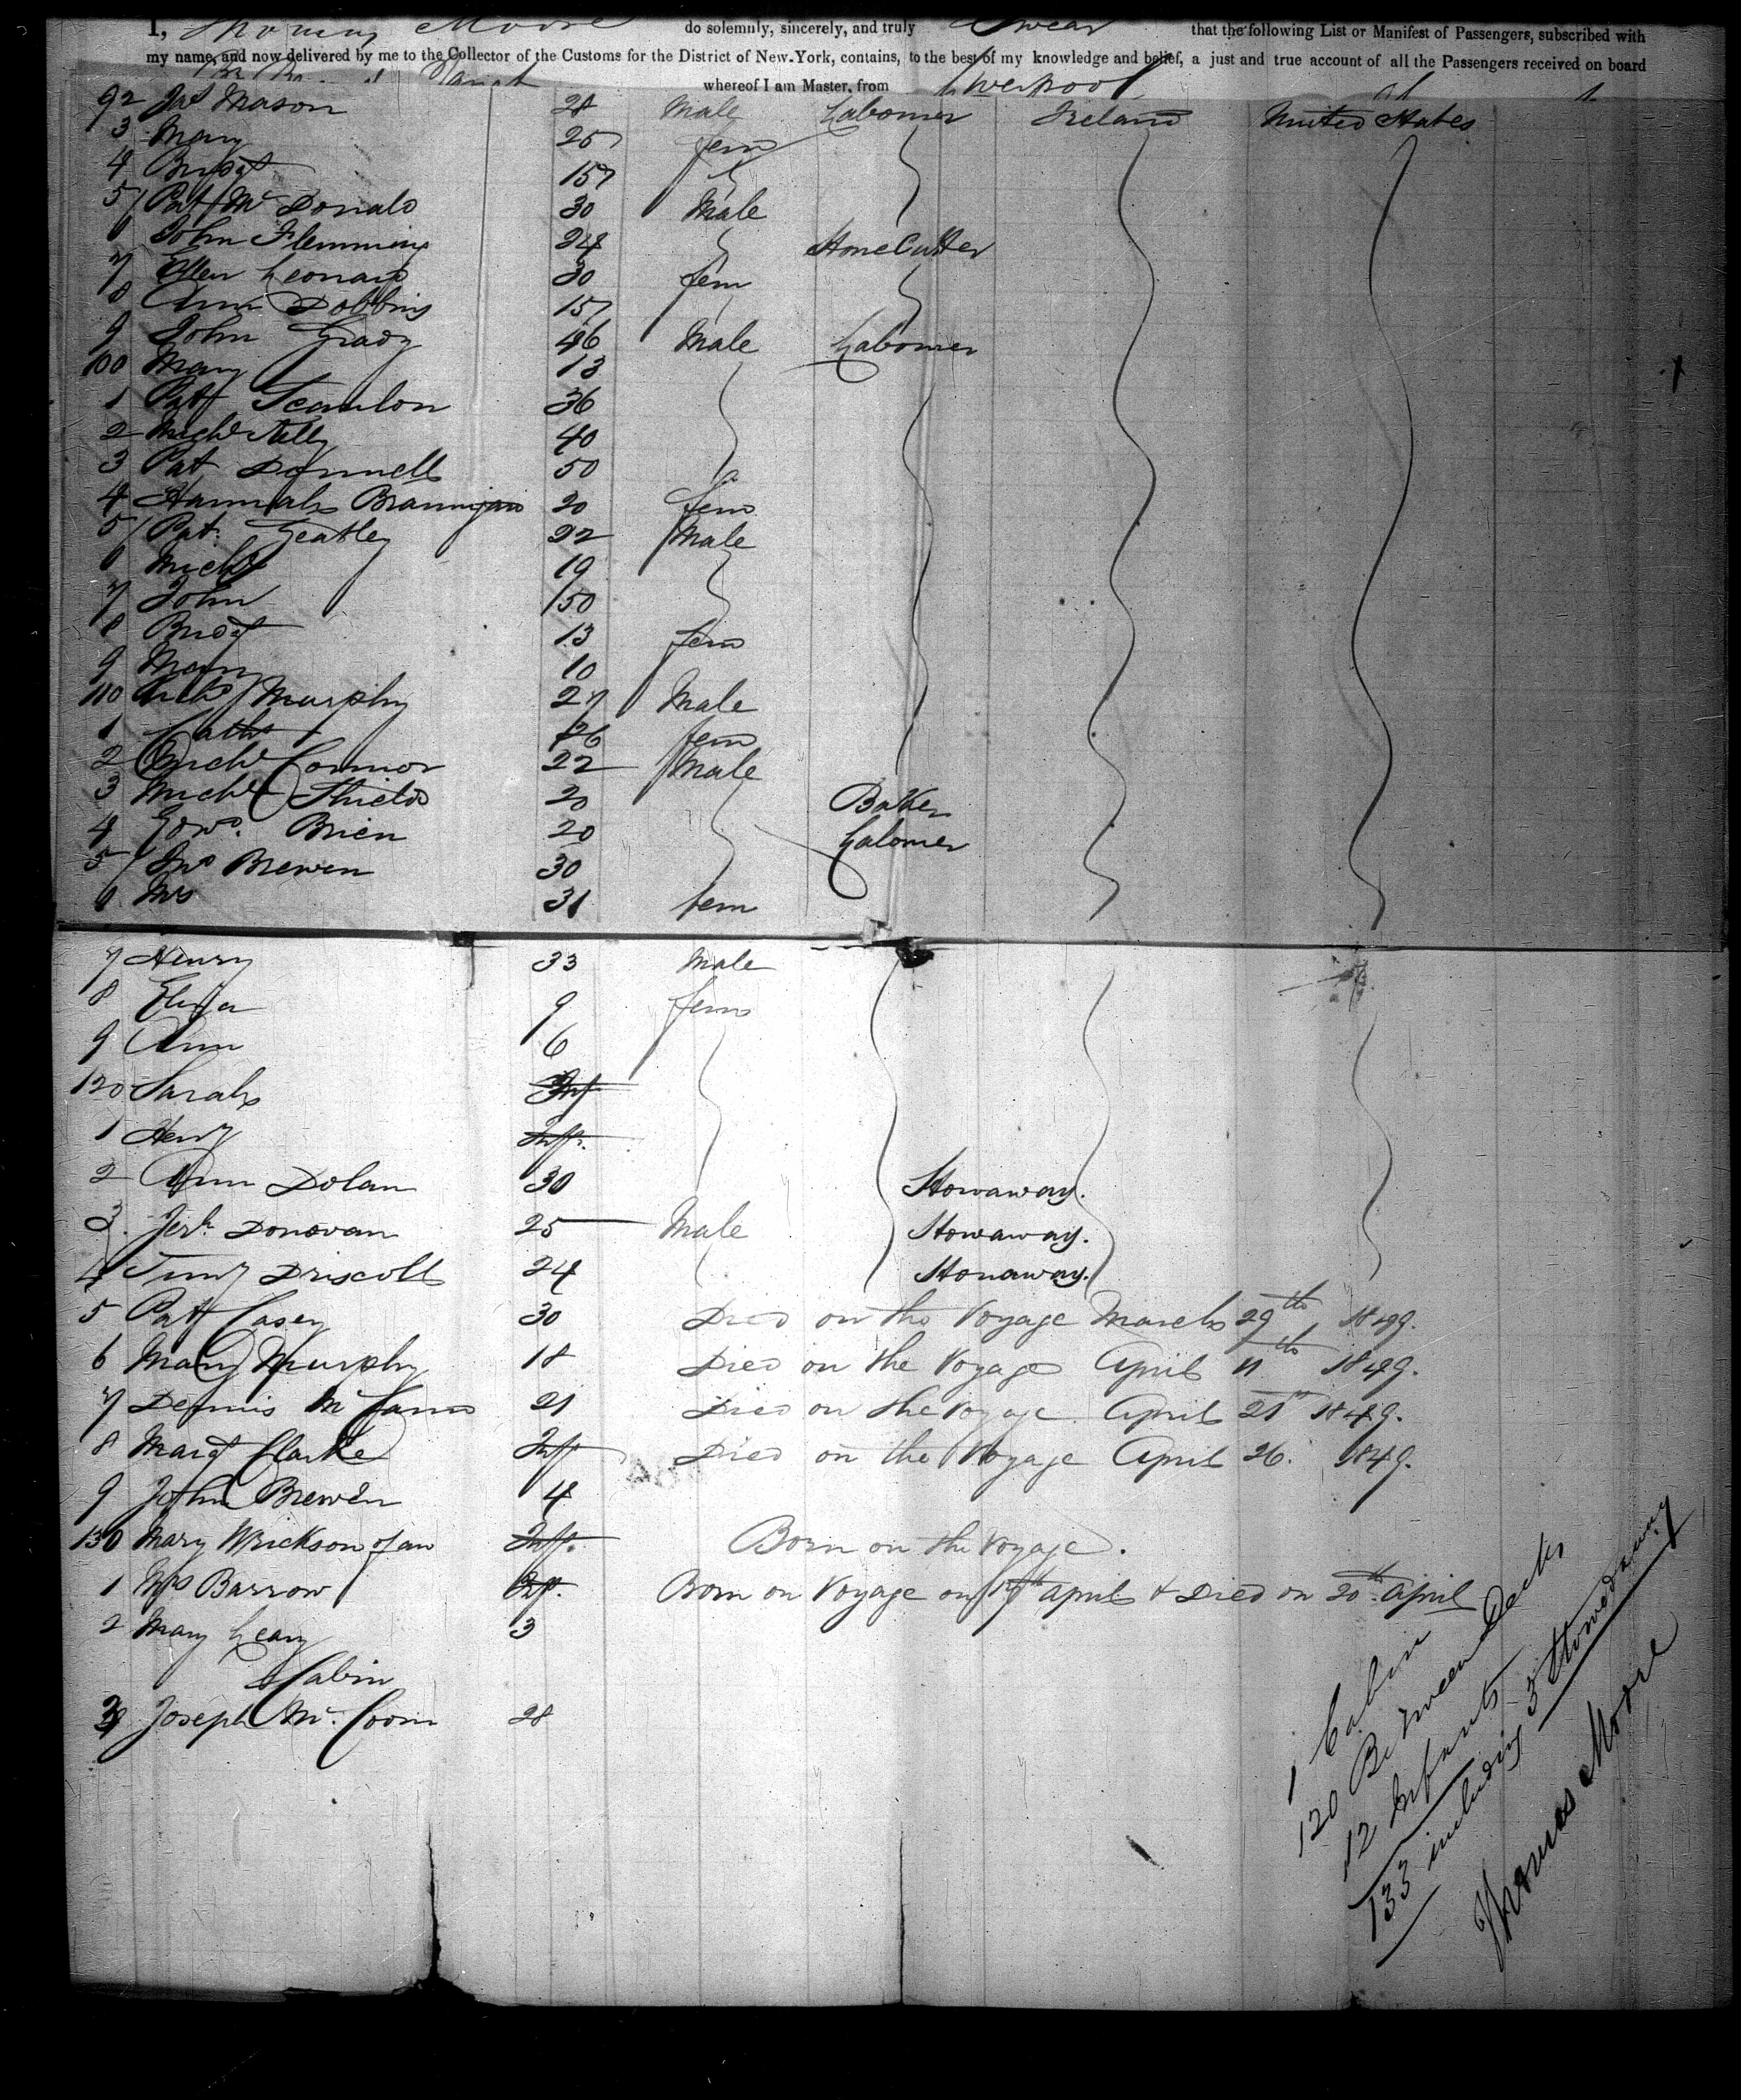 I, Thomas Moore do solemnly, sincerely, and truly Swear that the following List or Manifest of Passengers, subscribed with
my name, and now delivered by me to the Collector of the Customs for the District of New-York, contains, to the best of my knowledge and belief, a just and true account of all the Passengers received on board
whereof I am Master, from Liverpool
92 Jas Mason 28 Male Labourer Ireland United States
3 Mary 25 fem
4 Bridgt 15
5 Pat McDonald 30 Male
6 John Flemming 24 Stone Cutter
7 Ellen Leonard 30 fem
8 Ann Dobbins 15
9 John Grady 46 Male Labourer
100 Mary 13
1 Patt Scanlon 36
2 Michl 40
3 Pat Donnell 50
4 Hannah Brannigan 20 fem
5 Pat. Geatley 22 Male
6 Michl 19
7 John 50
8 Bridgt 13 fem
9 Mary 10
110 Murphy 27 Male
1 Cathe 26 fem
2 Michl Connor 22 Male
3 Michl Shields 20 Baker
4 Edwd. Brien 20 Labourer
5 Jno Brewen 30
6 Mrs 31 fem
7 Henry 33 Male
8 Eliza 9 fem
9 Ann 6
120 Sarah Inft
1 Henry Inft.
2 Ann Dolan 30 Stowaway.
3. Jerh. Donovan 25 Male Stowaway.
4 Timy Driscoll 24 Stowaway.
5 Patt Casey 30 Died on the Voyage March 29th 1849.
6 Mary Murphy 18 Died on the Voyage April 11th 1849.
7 Dennis McCann 21 Died on the Voyage April 21st 1849.
8 Margt Clarke Inft Died on the Voyage April 26. 1849.
9 John Brewen 4
130 Mary Wrickson of an Inft. Born on the Voyage.
1 Mrs Barrow Inft. Born on Voyage on 19th April & Died on 20th April
2 Mary Leary 3
Cabin
3 Joseph Mc. Coom 28
1 Cabin
120 Between Decks
12 Infants
133 including 3 Stowedaway
Thomas Moore